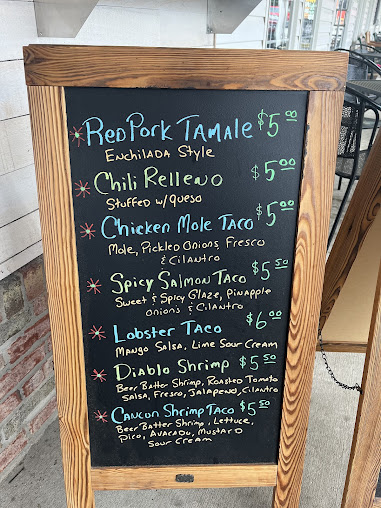 Red Pork Tamale $5.00
Enchilada Style
Chili Relleno $5.00
Stuffed w/ Queso
Chicken Mole Taco $5.00
Mole, Pickled Onions, Fresco
& Cilantro
Spicy Salmon Taco $5.50
Sweet & Spicy Glaze, Pinapple
Onions & Cilantro
Lobster Taco $6.00
Mango Salsa, Lime Sour Cream
Diablo Shrimp $5.50
Beer Batter Shrimp, Roasted Tomato
Salsa, Fresco, Jalapeno, Cilantro
Cancun Shrimp Taco $5.50
Beer Batter Shrimp, Lettuce,
Pico, Avacado, Mustard
Sour Cream